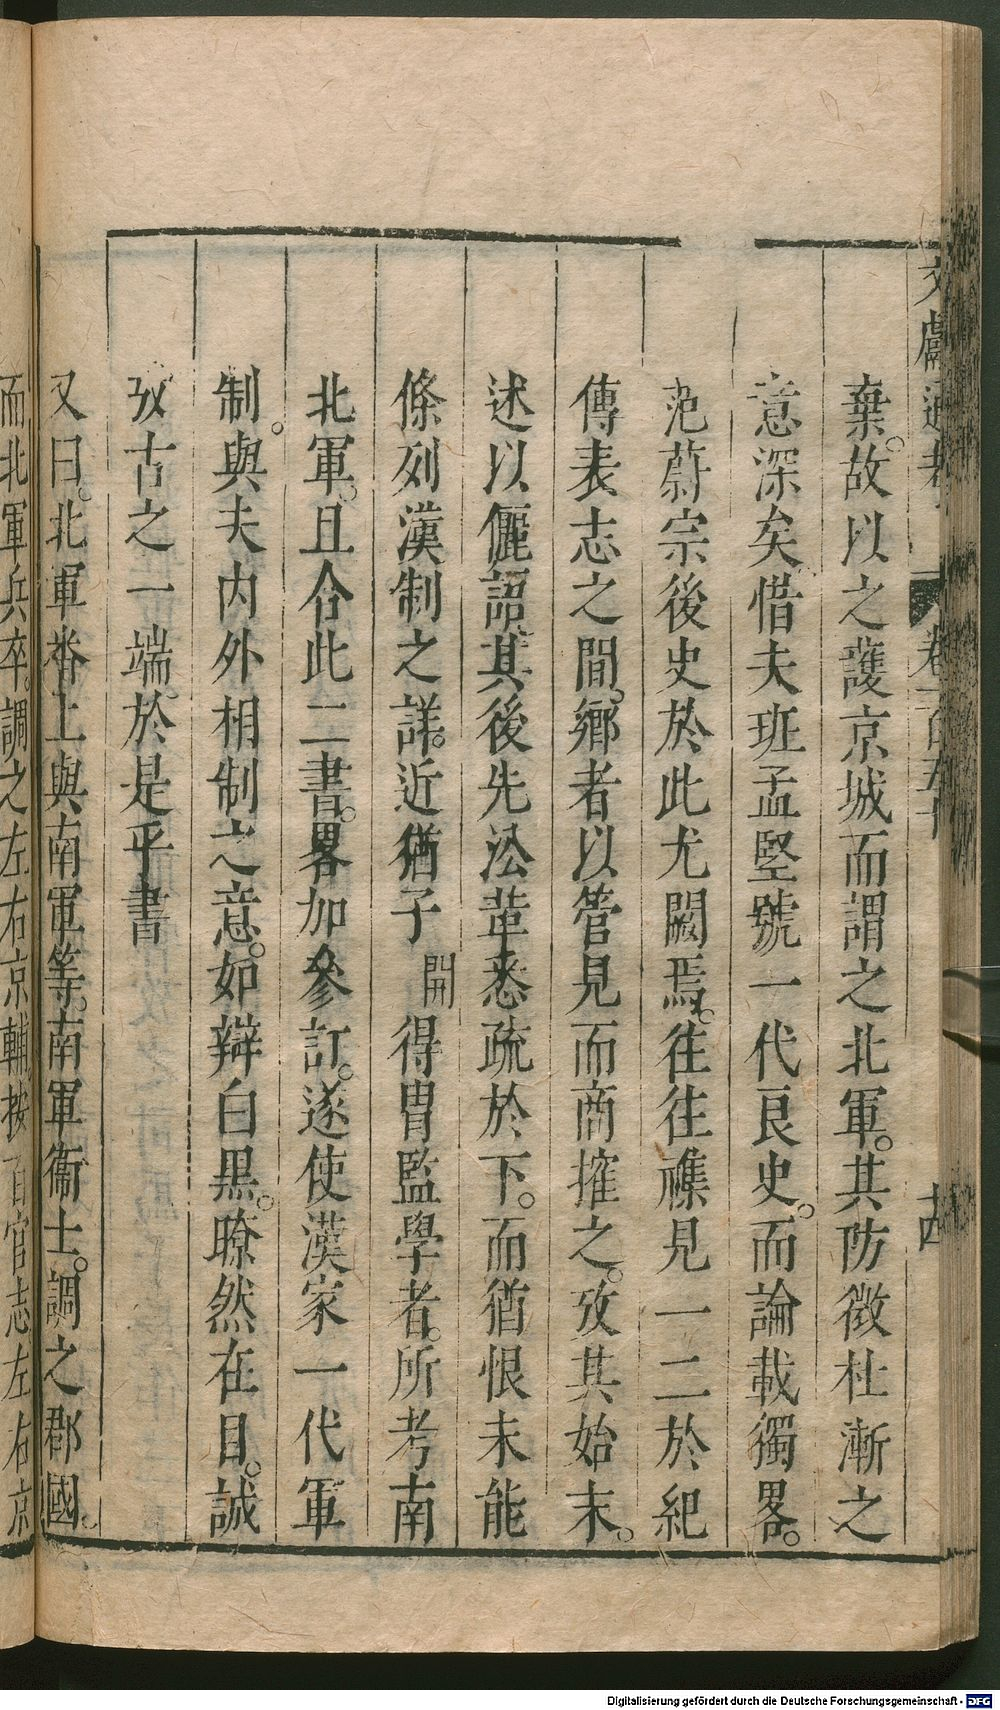 文獻通考
卷一百五十
十四
棄。故以之護京城而謂之北軍。其防微杜漸之
意深矣惜夫班孟堅號一代良史。而論載獨畧。
范蔚宗後史於此尤闕焉。往往襍見一二於紀
傳表志之間。鄉者以管見而商搉之。攷其始末。
述以儷語其後先浤輩悉疏於下。而猶恨未能
條列漢制之詳。近猶子開得胄監學者。所考南
北軍。且合此二書。畧加參訂。遂使漢家一代軍
制。與夫內外相制之意。如辯白黑。暸然在目。誠
攷古之一端。於是乎書
又曰。北軍畨上與南軍等。南軍衞士。調之郡國。
而北軍兵卒。調之左右京輔。按百官志左右京
Digitalisierung gefördert durch die Deutsche Forschungsgemeinschaft - DFG